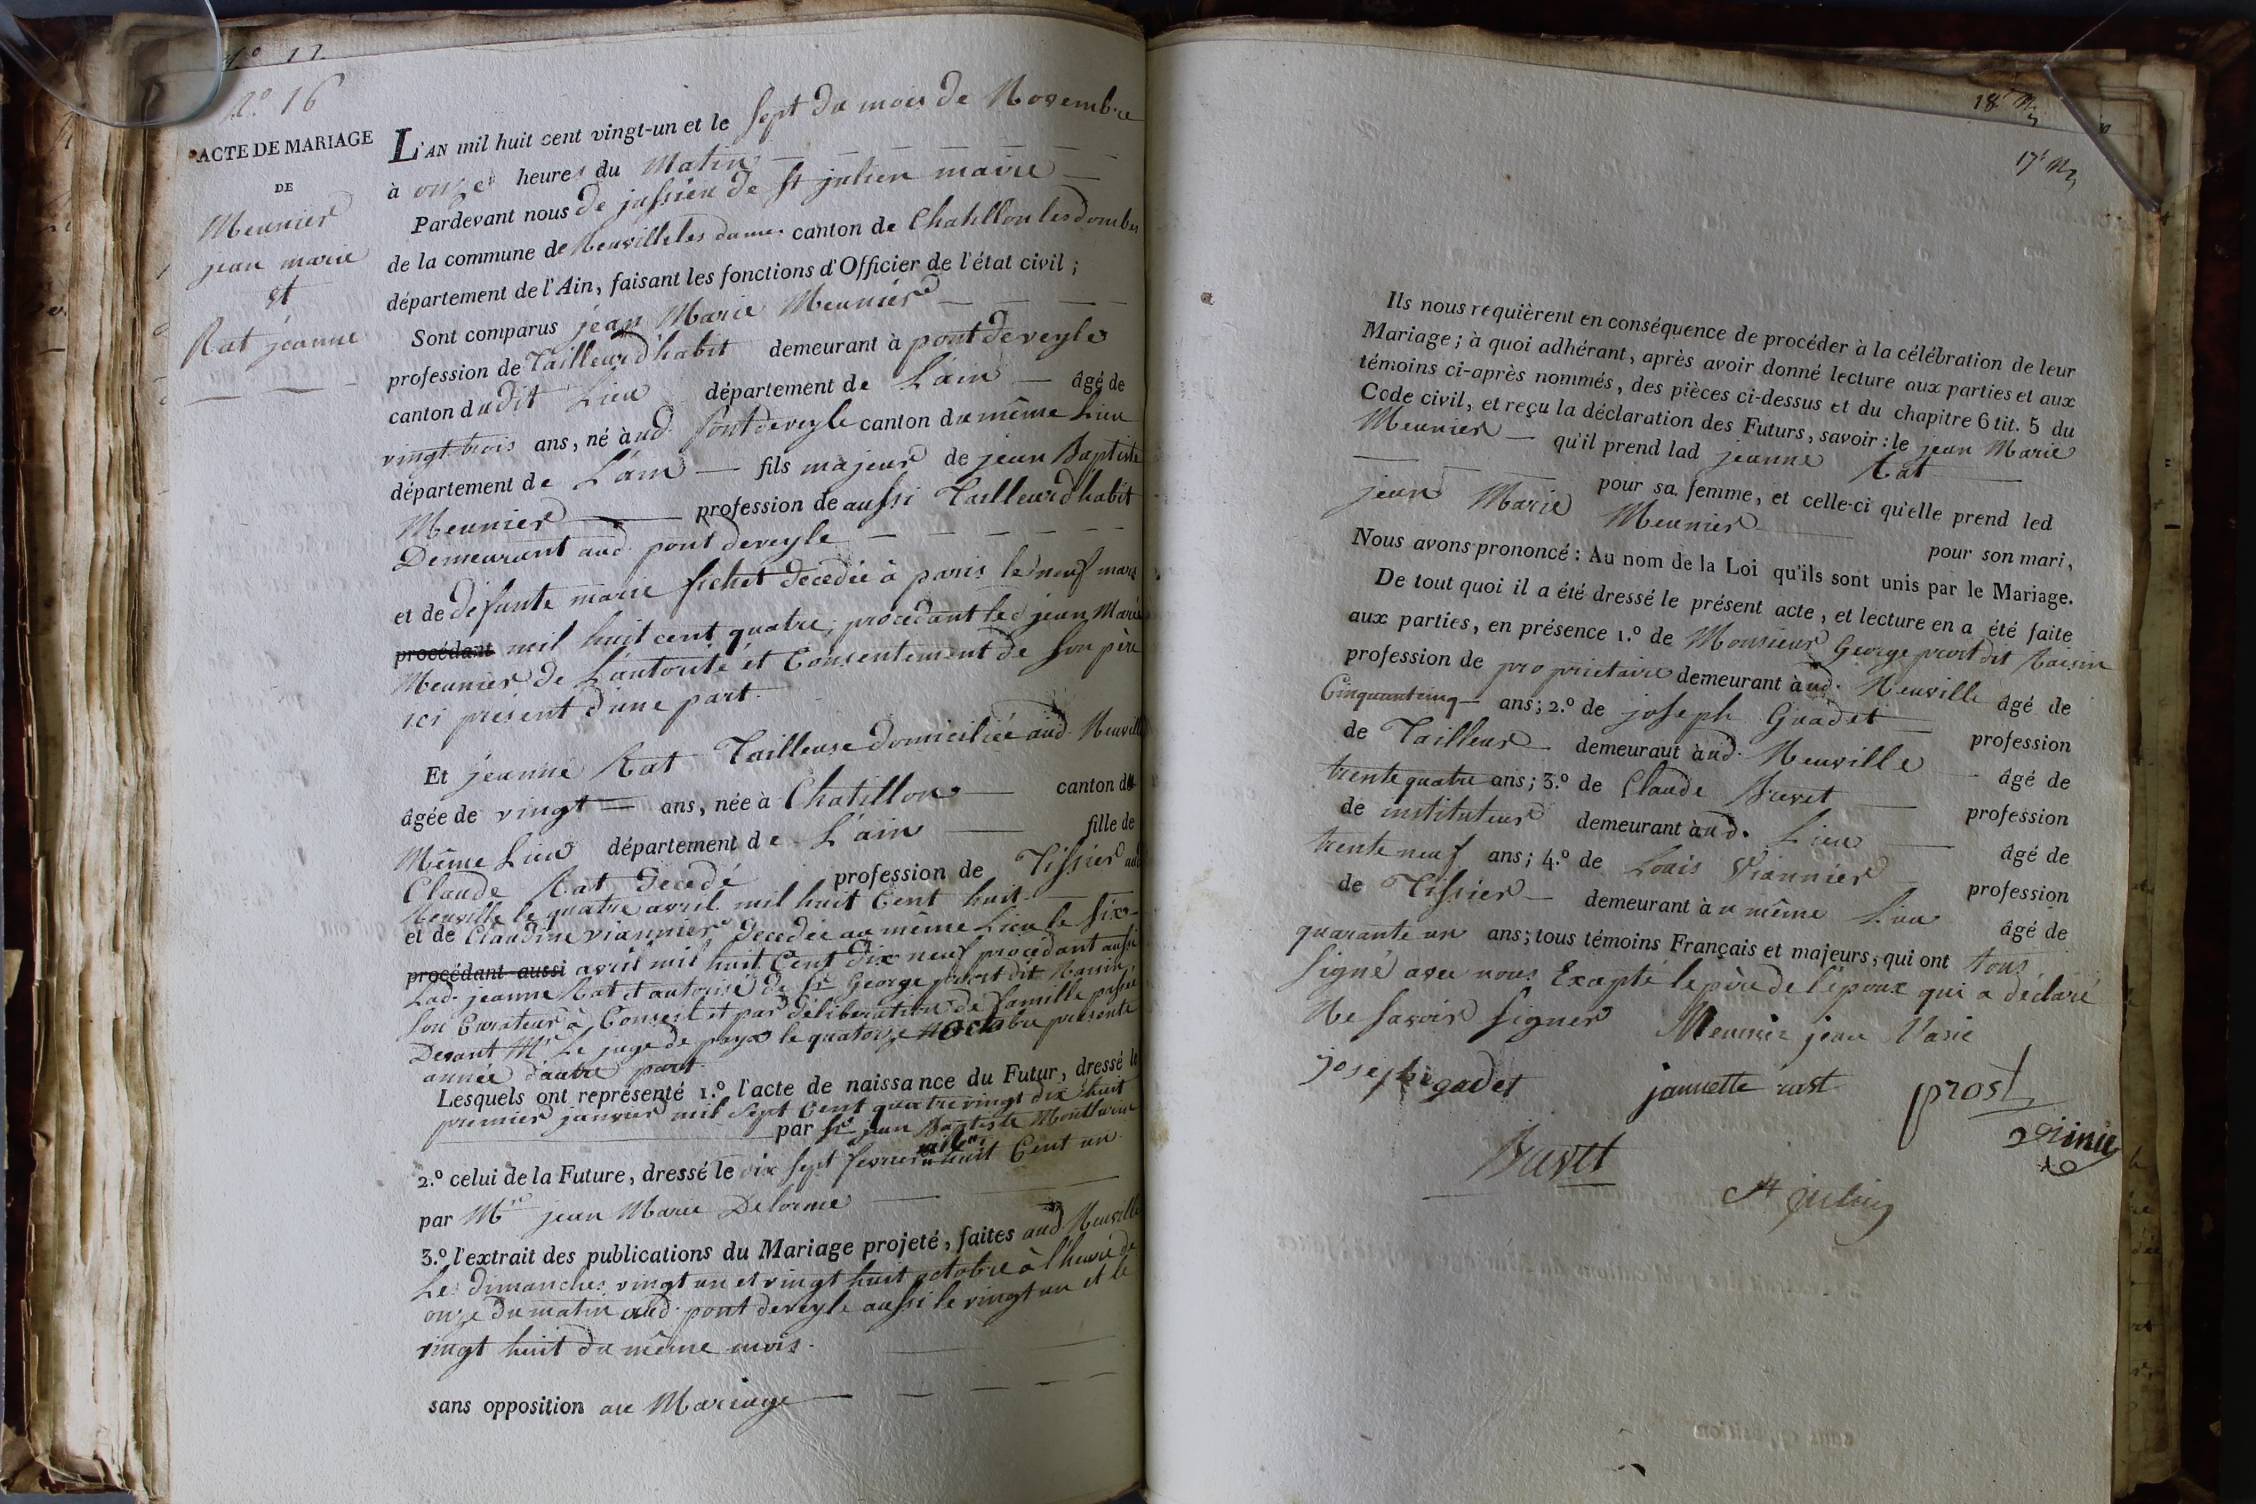 N.o 17.
N.o 16
ACTE DE MARIAGE
DE
Meunier
jean marie
et
Rat jeanne
L'AN mil huit cent vingt-un et le sept du mois de Novembre
à onze heures du Matin
Pardevant nous de jussieu de st julien maire
de la commune de Neuville les dames canton de Chatillon les dombes
département de l'Ain, faisant les fonctions d'Officier de l'état civil ;
Sont comparus jean Marie Meunier
profession de Tailleur d'habit demeurant à pont de veyle
canton dudit Lieu département de L'ain âgé de
vingt trois ans, né à ud. pont de veyle canton du même Lieu
département de L'ain fils majeur de jean Baptiste
Meunier profession de aussi Tailleur d'habit
Demeurant aud. pont de veyle
et de défunte marie fichet décédée à paris le neuf mars
procédant mil huit cent quatre, procédant led jean Marie
Meunier de L'autorité et Consentement de son père
ici présent d'une part.
Et jeanne Rat Tailleuse domiciliée aud. Neuville
âgée de vingt ans, née à Chatillon canton du
Même Lieu département de L'ain fille de
Claude Rat décédé profession de Tissier aud
Neuville le quatre avril mil huit Cent huit
et de Claudine viannier décédée au même Lieu le six
procédant aussi avril mil huit Cent dix neuf procédant aussi
Lad. jeanne Rat et autorisé de Sr George prost dit Raisin
son Curateur à Conseil et par délibération de famille passée
Devant Mr Le juge de paya le quatorze octobre présente
année d'autre part.
Lesquels ont représenté 1.o l'acte de naissance du Futur, dressé le
premier janvier mil sept Cent quatre vingt dix huit
par Sr jean Baptiste Monthurin
2.o celui de la Future, dressé le dix sept fevrier mil huit Cent un
par Mre jean Marie Delorme
3.o l'extrait des publications du Mariage projeté, faites aud Neuville
Les dimanches vingt un et vingt huit octobre à l'heure de
onze du matin aud. pont de veyle aussi le vingt un et le
vingt huit du même mois.
sans opposition au Mariage
18e
17e
Ils nous requièrent en conséquence de procéder à la célébration de leur
Mariage ; à quoi adhérant, après avoir donné lecture aux parties et aux
témoins ci-après nommés, des pièces ci-dessus et du chapitre 6 tit. 5 du
Code civil, et reçu la déclaration des Futurs, savoir : le jean Marie
Meunier qu'il prend lad jeanne Rat
pour sa femme, et celle-ci qu'elle prend led
jean Marie Meunier pour son mari,
Nous avons prononcé : Au nom de la Loi qu'ils sont unis par le Mariage.
De tout quoi il a été dressé le présent acte, et lecture en a été faite
aux parties, en présence 1.o de Monsieur George prost dit Raisin
profession de proprietaire demeurant à ud. Neuville âgé de
Cinquantcinq ans ; 2.o de joseph Guadet profession
de Tailleur demeuraut à ud. Neuville âgé de
trente quatre ans ; 3.o de Claude Buvet profession
de instituteur demeurant à ud. Lieu âgé de
trente neuf ans ; 4.o de Louis Viannier profession
de Tissier demeurant à u même Lieu âgé de
quarante un ans ; tous témoins Français et majeurs, qui ont tous
signé avec nous Excepté le père de l'époux qui a déclaré
Ne savoir signer Meunier jean Marie
joseph gadet jannette rast prost
Buvet St julien